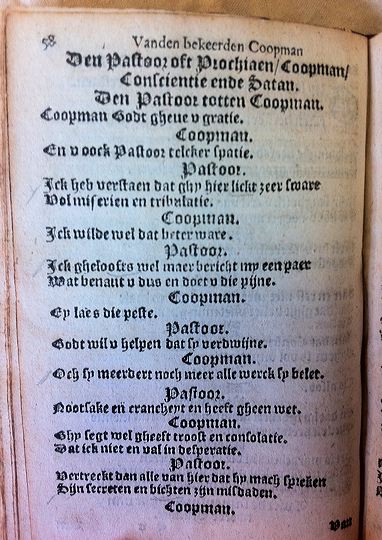 58 Vanden bekeerden Coopman
Den Pastoor oft Prochiaen/Coopman/
Conscientie ende Satan.
Den Pastoor totten Coopman.
Coopman Godt gheve v gratie.
Coopman.
En v oock Pastoor telcker spatie.
Pastoor.
Ick heb verstaen dat ghy hier lickt zeer sware
Vol miserien en tribulatie.
Coopman.
Ick wilde wel dat beter ware.
Pastoor.
Ick gheloofts wel maer bericht my een paer
Wat benaut v dus en doet v die pijne.
Coopman.
Ey laes die peste.
Pastoor.
Godt wil v helpen dat sy verdwijne.
Coopman.
Och sy meerdert noch meer alle werck sy belet.
Pastoor.
Nootsake en cranckeyt en heeft gheen wet.
Coopman.
Ghy segt wel gheeft troost en consolatie.
Dat ick niet en val in desperatie.
Pastoor.
Vertreckt dan alle van hier dat hy mach spreken
Sijn secreten en biechten zijn misdaden.
Coopman.
Van